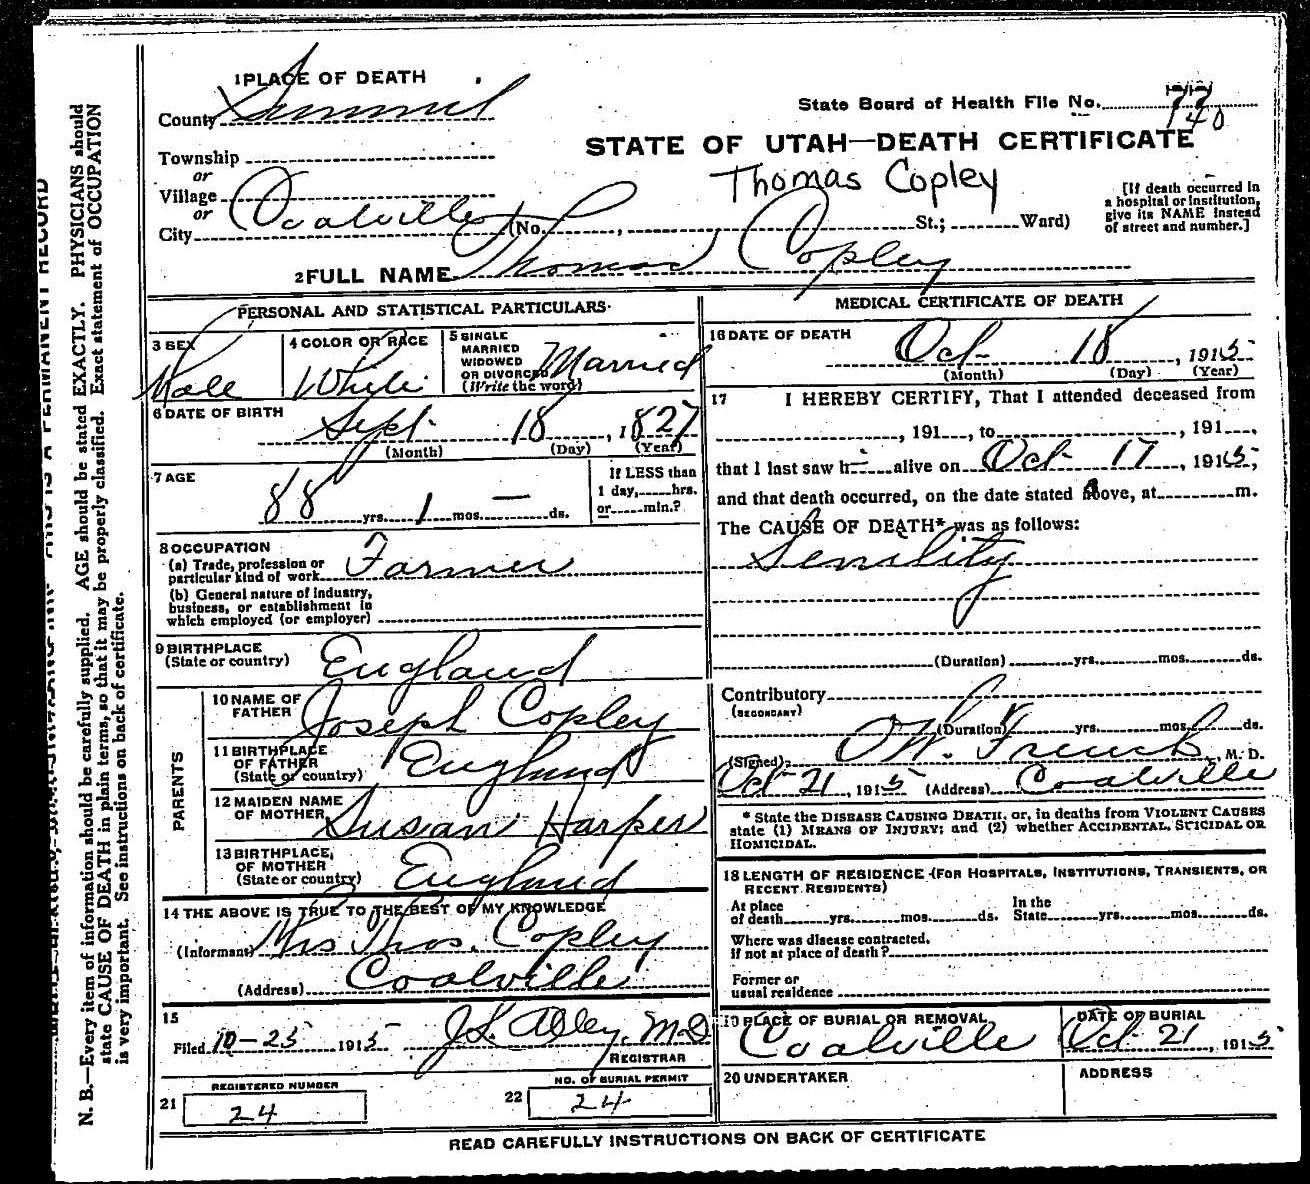 1 PLACE OF DEATH
County Summit
State Board of Health File No. 77
140
STATE OF UTAH—DEATH CERTIFICATE
Thomas Copley
Township
or
Village
or
City Coalville (No. , St.; Ward)
[If death occurred in
a hospital or institution,
give its NAME instead
of street and number.]
2 FULL NAME Thomas Copley
PERSONAL AND STATISTICAL PARTICULARS
3 SEX
Male
4 COLOR OR RACE
White
5 SINGLE
MARRIED
WIDOWED
OR DIVORCED
(Write the word)
Married
6 DATE OF BIRTH
Sept. 18, 1827
(Month) (Day) (Year)
7 AGE
88 yrs. 1 mos. — ds.
If LESS than
1 day, hrs.
or min.?
8 OCCUPATION
(a) Trade, profession or
particular kind of work Farmer
(b) General nature of industry,
business, or establishment in
which employed (or employer)
9 BIRTHPLACE
(State or country) England
PARENTS
10 NAME OF
FATHER Joseph Copley
11 BIRTHPLACE
OF FATHER
(State or country) England
12 MAIDEN NAME
OF MOTHER Susan Harper
13 BIRTHPLACE
OF MOTHER
(State or country) England
14 THE ABOVE IS TRUE TO THE BEST OF MY KNOWLEDGE
(Informant) Mrs Thos. Copley
(Address) Coalville
15
Filed 10-25 1915
M.D
REGISTRAR
REGISTERED NUMBER
21 24
NO. OF BURIAL PERMIT
22 24
MEDICAL CERTIFICATE OF DEATH
16 DATE OF DEATH
Oct- 18, 1915
(Month) (Day) (Year)
17 I HEREBY CERTIFY, That I attended deceased from
, 191 , to , 191 ,
that I last saw h alive on Oct- 17, 1915,
and that death occurred, on the date stated above, at m.
The CAUSE OF DEATH* was as follows:
Senility
(Duration) yrs. mos. ds.
Contributory
(SECONDARY)
(Duration) yrs. mos. ds.
(Signed) French, M. D.
Oct 21, 1915 (Address) Coalville
* State the DISEASE CAUSING DEATH, or, in deaths from VIOLENT CAUSES
state (1) MEANS OF INJURY; and (2) whether ACCIDENTAL, SUICIDAL OR
HOMICIDAL.
18 LENGTH OF RESIDENCE (FOR HOSPITALS, INSTITUTIONS, TRANSIENTS, OR
RECENT RESIDENTS)
At place
of death yrs. mos. ds.
In the
State yrs. mos. ds.
Where was disease contracted,
if not at place of death?
Former or
usual residence
19 PLACE OF BURIAL OR REMOVAL
Coalville
DATE OF BURIAL
Oct 21, 1915
20 UNDERTAKER
ADDRESS
READ CAREFULLY INSTRUCTIONS ON BACK OF CERTIFICATE
N. B.—Every item of information should be carefully supplied. AGE should be stated EXACTLY. PHYSICIANS should
state CAUSE OF DEATH in plain terms, so that it may be properly classified. Exact statement of OCCUPATION
is very important. See instructions on back of certificate.